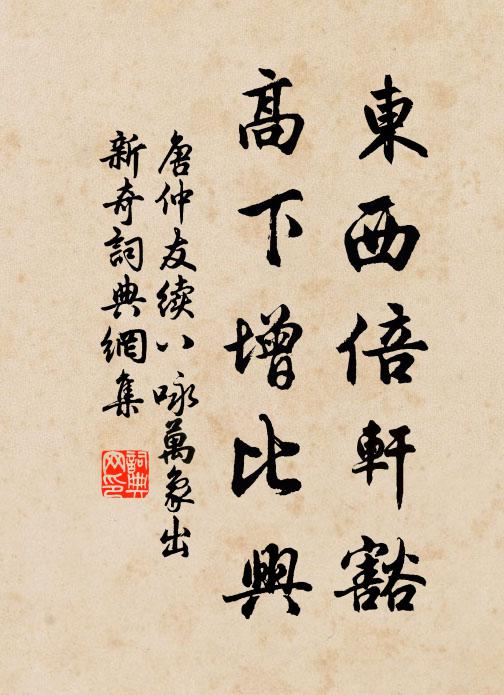 東西倍軒豁
高下增比興
唐仲友續八咏萬象出
新奇詞典網集
詞典網印